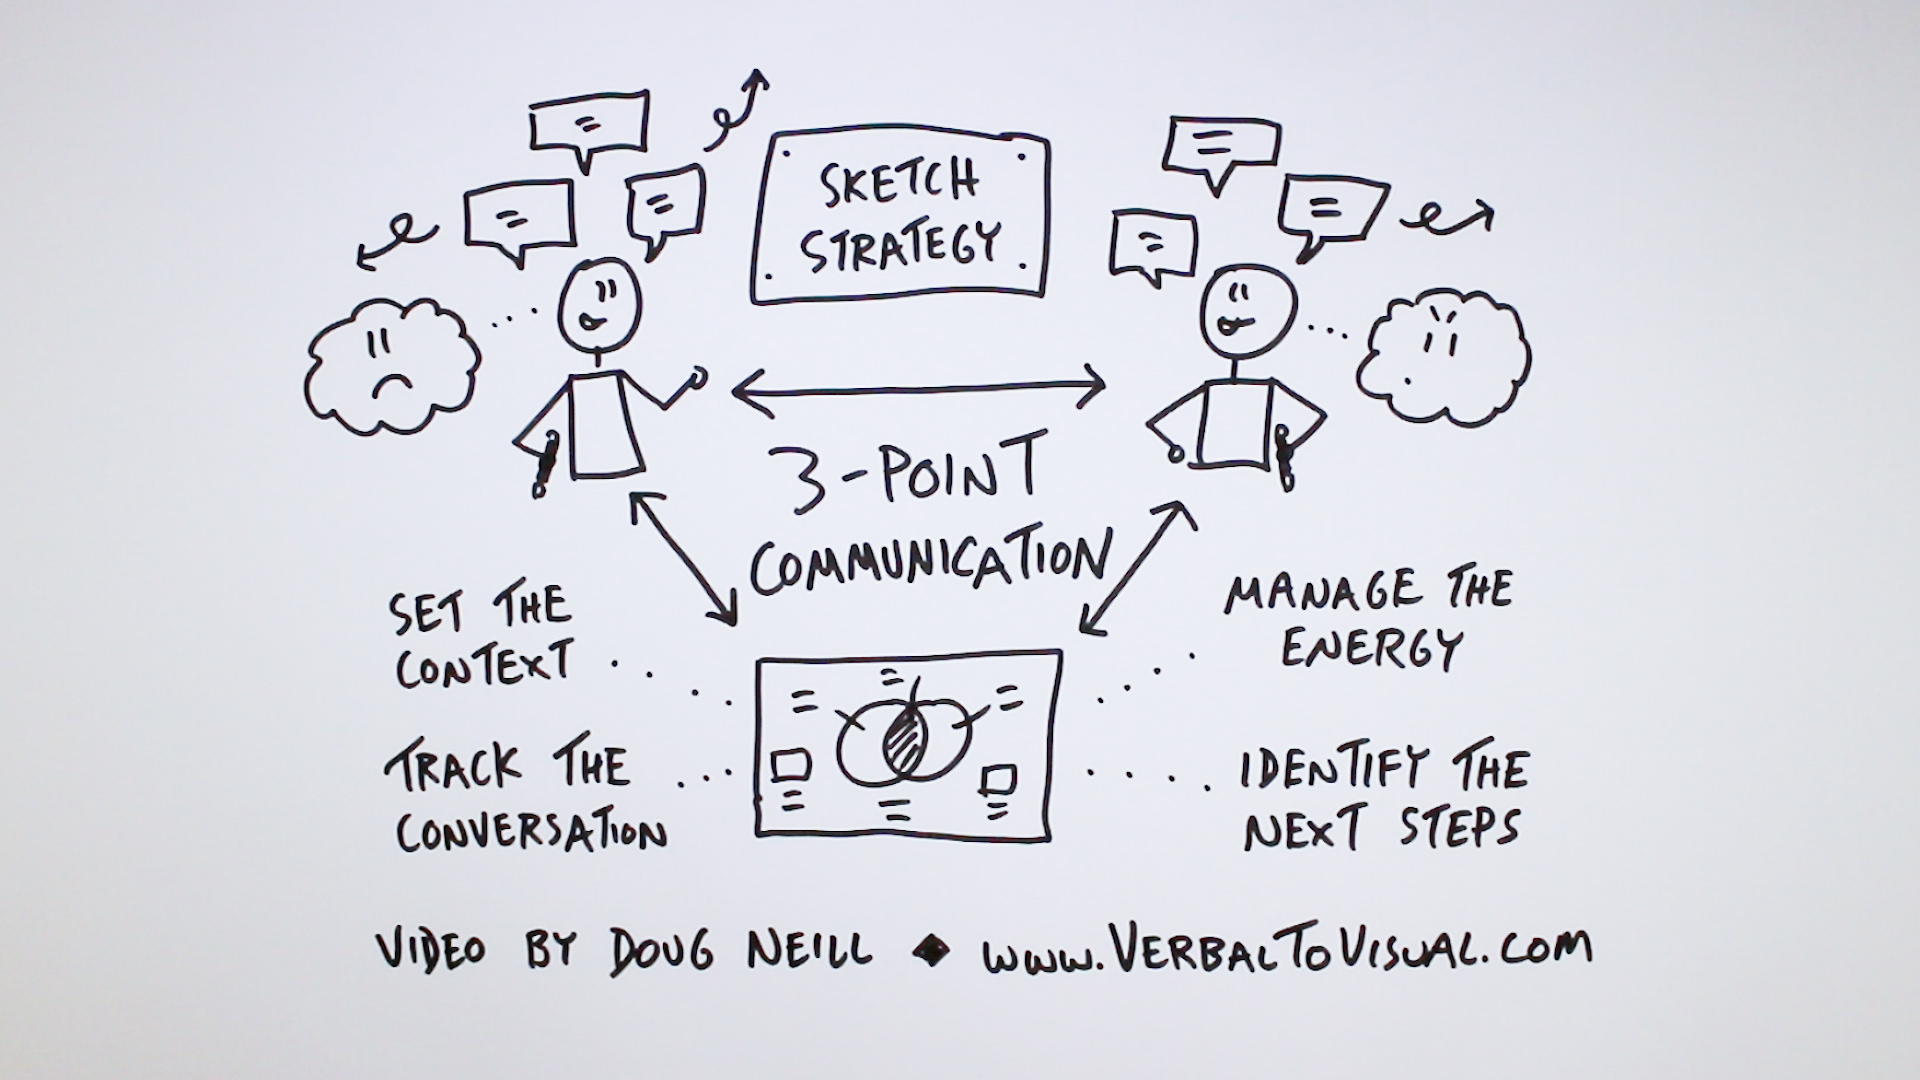 SKETCH
STRATEGY
3-POINT
COMMUNICATION
SET THE
CONTEXT
MANAGE THE
ENERGY
TRACK THE
CONVERSATION
IDENTIFY THE
NEXT STEPS
VIDEO BY DOUG NEILL ◆ www.VERBALTOVISUAL.COM